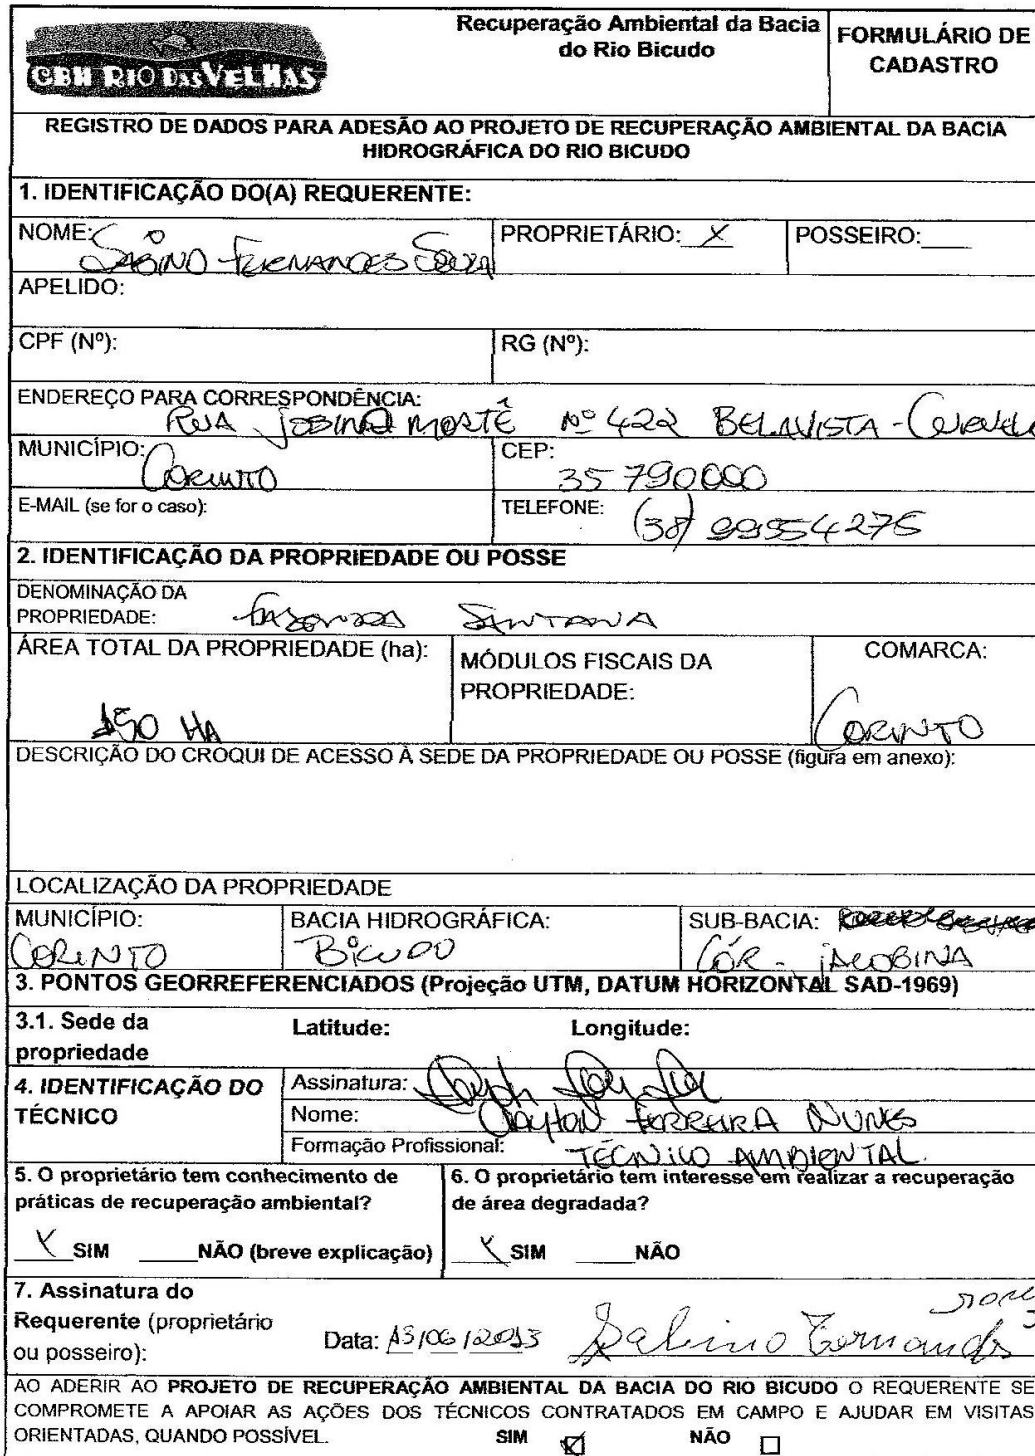 CBH RIO DAS VELHAS
Recuperação Ambiental da Bacia
do Rio Bicudo
FORMULÁRIO DE
CADASTRO
REGISTRO DE DADOS PARA ADESÃO AO PROJETO DE RECUPERAÇÃO AMBIENTAL DA BACIA
HIDROGRÁFICA DO RIO BICUDO
1. IDENTIFICAÇÃO DO(A) REQUERENTE:
NOME: SABINO FERNANDES SOUZA
PROPRIETÁRIO: X
POSSEIRO:
APELIDO:
CPF (Nº):
RG (Nº):
ENDEREÇO PARA CORRESPONDÊNCIA:
RUA Nº 422 BELAVISTA -
MUNICÍPIO: CORINTO
CEP: 35790000
E-MAIL (se for o caso):
TELEFONE: (38)
2. IDENTIFICAÇÃO DA PROPRIEDADE OU POSSE
DENOMINAÇÃO DA
PROPRIEDADE: FAZENDA SANTANA
ÁREA TOTAL DA PROPRIEDADE (ha):
150 HA
MÓDULOS FISCAIS DA
PROPRIEDADE:
COMARCA:
CORINTO
DESCRIÇÃO DO CROQUI DE ACESSO À SEDE DA PROPRIEDADE OU POSSE (figura em anexo):
LOCALIZAÇÃO DA PROPRIEDADE
MUNICÍPIO:
CORINTO
BACIA HIDROGRÁFICA:
BICUDO
SUB-BACIA:
CÓR - JACOBINA
3. PONTOS GEORREFERENCIADOS (Projeção UTM, DATUM HORIZONTAL SAD-1969)
3.1. Sede da
propriedade
Latitude: Longitude:
4. IDENTIFICAÇÃO DO
TÉCNICO
Assinatura:
Nome: CLAYTON FERREIRA NUNES
Formação Profissional: TÉCNICO AMBIENTAL.
5. O proprietário tem conhecimento de
práticas de recuperação ambiental?
X SIM NÃO (breve explicação)
6. O proprietário tem interesse em realizar a recuperação
de área degradada?
X SIM NÃO
7. Assinatura do
Requerente (proprietário
ou posseiro):
Data: 13/06/2013 Sabino Fernandes
AO ADERIR AO PROJETO DE RECUPERAÇÃO AMBIENTAL DA BACIA DO RIO BICUDO O REQUERENTE SE
COMPROMETE A APOIAR AS AÇÕES DOS TÉCNICOS CONTRATADOS EM CAMPO E AJUDAR EM VISITAS
ORIENTADAS, QUANDO POSSÍVEL. SIM ☑ NÃO ☐